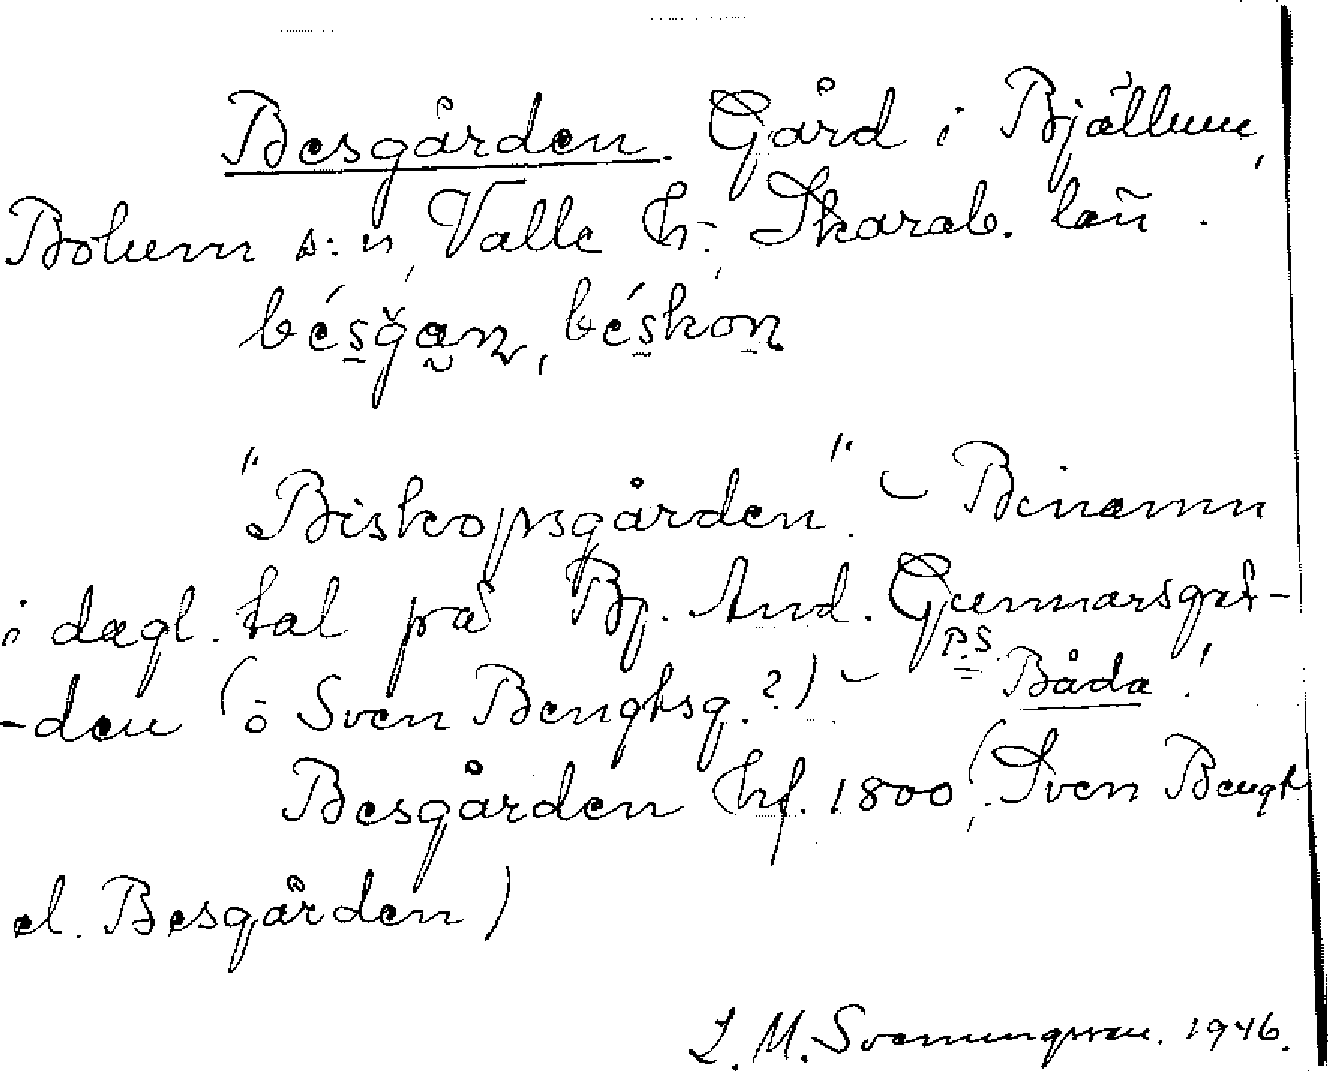 Besgården. Gård i Bjällum,
Bolum s:n, Valle hr, Skarab. län.
bésgan, béskon
"Biskopsgården". – Binamn
i dagl. tal på Bj. And. Gunnarsgår-
-den (o Sven Bengtsg.?) – P.S. Båda!
Besgården hf. 1800, (Sven Bengt
el. Besgården)
L. M. Svenungsson. 1946.